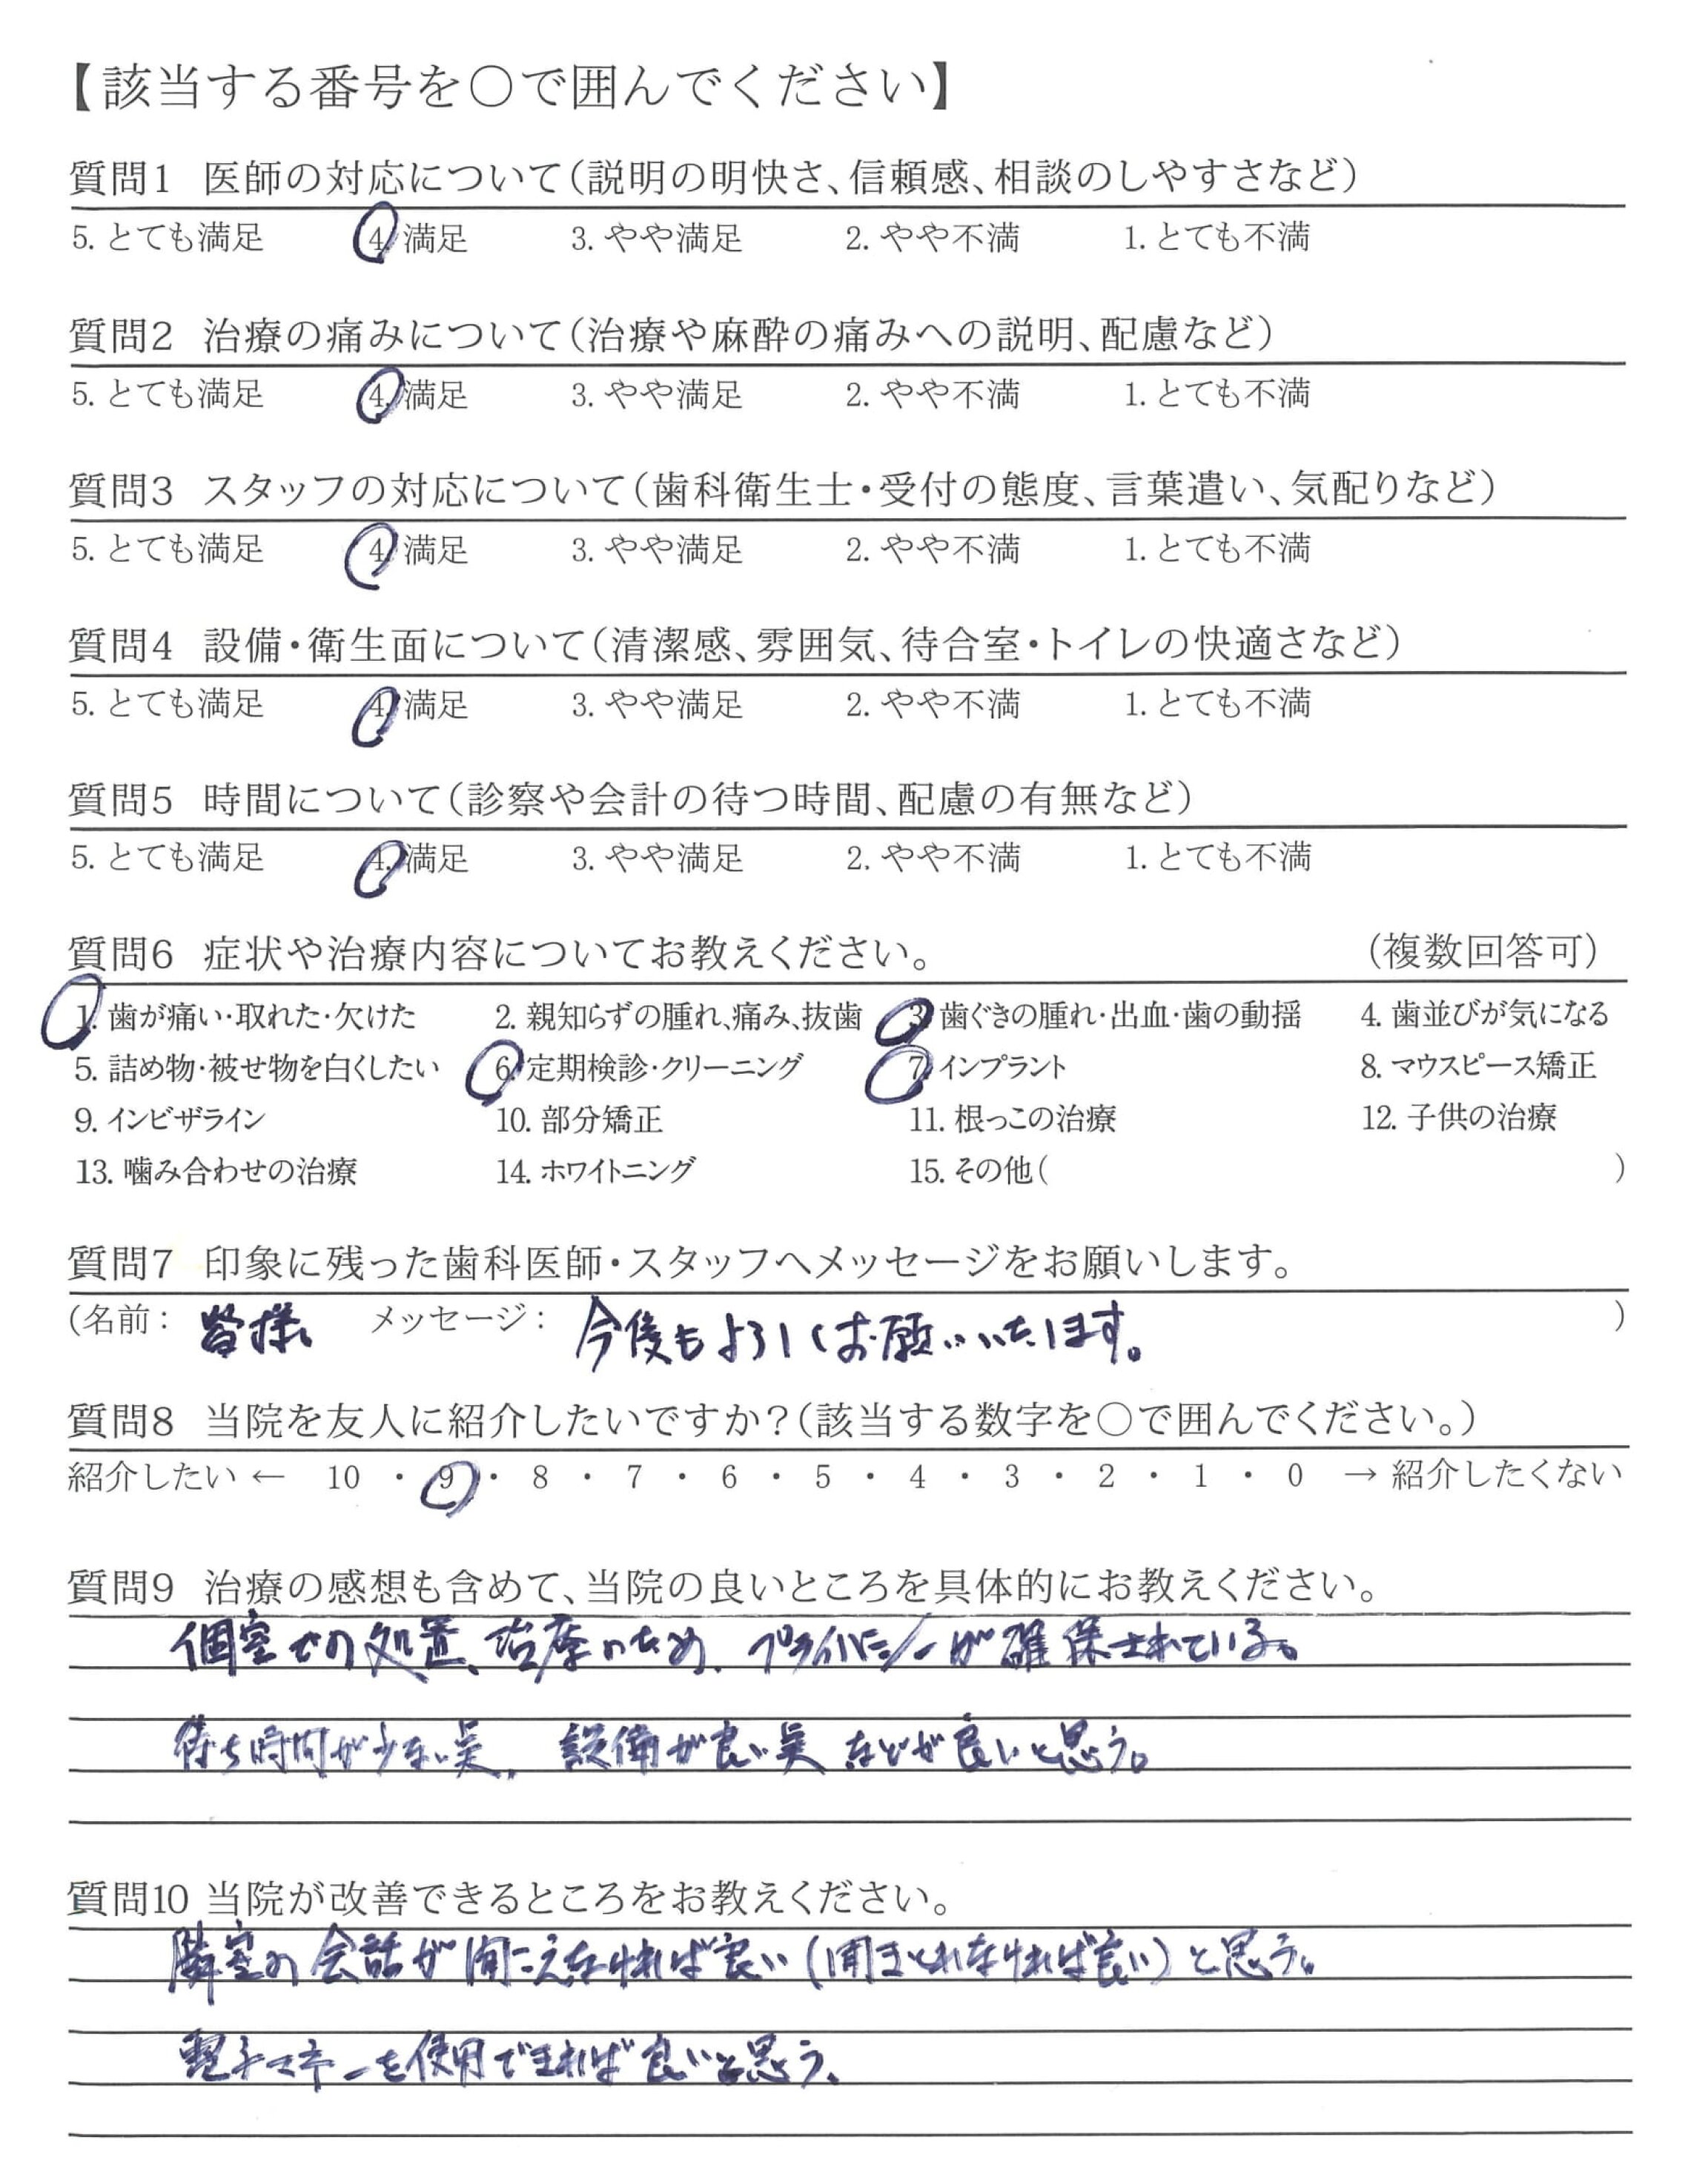 【該当する番号を〇で囲んでください】
質問1 医師の対応について(説明の明快さ、信頼感、相談のしやすさなど)
5. とても満足 4. 満足 3. やや満足 2. やや不満 1. とても不満
質問2 治療の痛みについて(治療や麻酔の痛みへの説明、配慮など)
5. とても満足 4. 満足 3. やや満足 2. やや不満 1. とても不満
質問3 スタッフの対応について(歯科衛生士・受付の態度、言葉遣い、気配りなど)
5. とても満足 4. 満足 3. やや満足 2. やや不満 1. とても不満
質問4 設備・衛生面について(清潔感、雰囲気、待合室・トイレの快適さなど)
5. とても満足 4. 満足 3. やや満足 2. やや不満 1. とても不満
質問5 時間について(診察や会計の待つ時間、配慮の有無など)
5. とても満足 4. 満足 3. やや満足 2. やや不満 1. とても不満
質問6 症状や治療内容についてお教えください。 (複数回答可)
1. 歯が痛い・取れた・欠けた 2. 親知らずの腫れ、痛み、抜歯 3. 歯ぐきの腫れ・出血・歯の動揺 4. 歯並びが気になる
5. 詰め物・被せ物を白くしたい 6. 定期検診・クリーニング 7. インプラント 8. マウスピース矯正
9. インビザライン 10. 部分矯正 11. 根っこの治療 12. 子供の治療
13. 噛み合わせの治療 14. ホワイトニング 15. その他( )
質問7 印象に残った歯科医師・スタッフへメッセージをお願いします。
(名前: 皆様。 メッセージ: 今後もよろしくお願いいたします。 )
質問8 当院を友人に紹介したいですか?(該当する数字を〇で囲んでください。)
紹介したい ← 10 ・ 9 ・ 8 ・ 7 ・ 6 ・ 5 ・ 4 ・ 3 ・ 2 ・ 1 ・ 0 → 紹介したくない
質問9 治療の感想も含めて、当院の良いところを具体的にお教えください。
個室での処置、治療のため、プライバシーが確保されている。
待ち時間が少ない点、設備が良い点などが良いと思う。
質問10 当院が改善できるところをお教えください。
隣室の会話が聞こえなければ良い(聞きとれなければ良い)と思う。
電子マネーを使用できれば良いと思う。